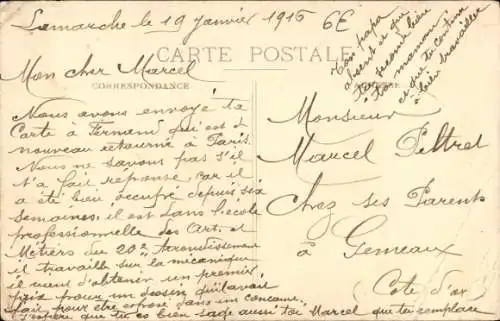 Lamarche le 19 Janvier 1916 6E
CARTE POSTALE
CORRESPONDANCE
Mon cher Marcel
Nous avons envoyé ta
Carte à Fernand qui est de
nouveau retourné à Paris.
Nous ne savons pas s'il
t'a fait réponse car il
a été bien occupé depuis six
semaines, il est dans l'école
professionnelle des Art, et
Métiers du 20e Arrondissement
il travaille sur la mécanique
il vient d'obtenir un premier
prix pour un dessin qu'il avait
fait pour être exposé dans un concours
J'espère que tu es bien sage aussi toi Marcel que tu remplace
ton papa
absent et que
tu seconde bien
ta maman
et que tu continu
à bien travailler
Monsieur
Marcel Peltret
Chez ses Parents
à Gemeaux
(Côte d'or)